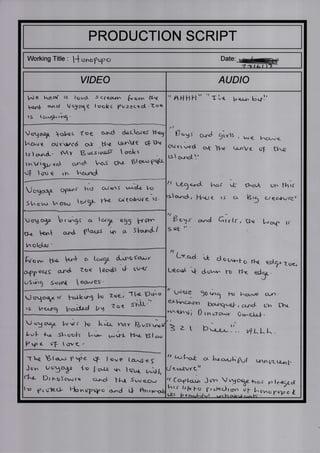 PRODUCTION SCRIPT
Working Title : Honopupo
Date:
VIDEO
AUDIO
We hear a loud scream from the
tent and Voyage looks puzzled. Zoe
is laughing.
"AHHH" "I've been bit"
Voyage takes Zoe and declares they
have arrived at the centre of the
island. Mr Business looks
intrigued and has the Blowpipe
of love in hand
"Boys and Girls, we have
arrived at the centre of the
island"
Voyage opens his arms wide to
show how large the creature is
"Legend has it that on this
island, there is a Big creature"
Voyage brings a large egg from
the tent and places in a stand/
holder
"Boys and Girls, the trap is
set"
From the tent a large dinosaur
appears and Zoe leads it over
using some leaves.
"Lead it down to the edge Zoe,
Lead it down to the edge"
Voyage is talking to Zoe, The Dino
is being baited by Zoe still
"Were going to have an
extinction banquet, and on the
menu, Dinosaur
Voyage tries to kiss Mr Business
but he shoots him with the Blow
Pipe of love.
3 2 1
The Blow Pipe of love causes
Jon Voyage to fall in love with
the Dinosaurs and he swears
to protect Honopupo and it Animals
"what a beautiful innocent
creature"
"Captain Jon Voyage has pledged
his life to protection of Honopupo &
its beautiful inhabitants